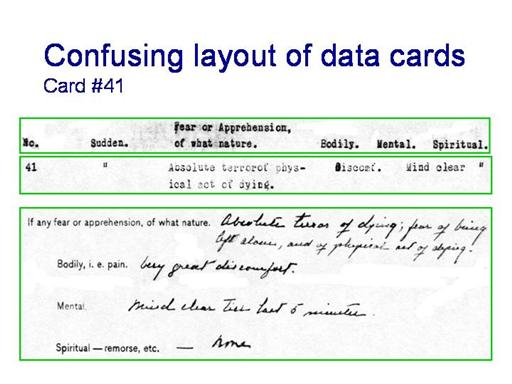 Confusing layout of data cards
Card #41
Fear or Apprehension,
No. Sudden. of what nature. Bodily. Mental. Spiritual.
41 " Absolute terrorof phys- Discomf. Mind clear "
ical act of dying.
If any fear or apprehension, of what nature. Absolute terror of dying; fear of being
left alone, and of physical act of dying.
Bodily, i. e. pain. Very great discomfort.
Mental. Mind clear till last 5 minutes.
Spiritual — remorse, etc. — None